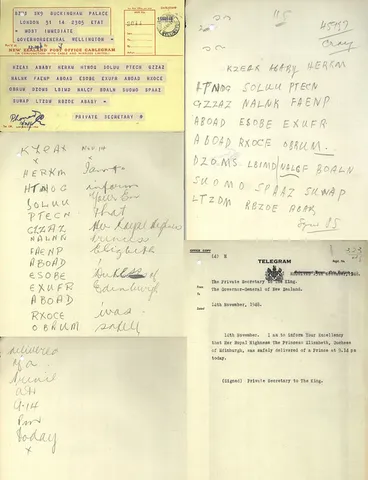 BUCKINGHAM PALACE
LONDON 31 14 2305 STAT
MOST IMMEDIATE
GOVERNORGENERAL WELLINGTON
NEW ZEALAND POST OFFICE CABLEGRAM
KZEAX ABABY HERKM HTNOG SOLUU PTECN GZZAZ
NALNK FAENP ABOAD ESOBE EXUFR ABOAD RXOCE
OBRUM DZOMS LBIMO NALCF BOALN SUOMO SPAAZ
SUWAP LTZOM RBZOE ABABY
PRIVATE SECRETARY
KZEAX ABABY HERKM
HTNOG SOLUU PTECN
GZZAZ NALNK FAENP
ABOAD ESOBE EXUFR
ABOAD RXOCE OBRUM.
DZOMS LBIMO NALCF BOALN
SUOMO SPAAZ SUWAP
LTZOM RBZOE ABAB
KZEAX Nov 14
x x
HERKM I am to
HTNOG inform
SOLUU Your Ex
PTECN that
GZZAZ Her Royal Highness
NALNK Princess
FAENP Elizabeth
ABOAD
ESOBE Duchess of
EXUFR Edinburgh
ABOAD
RXOCE was
OBRUM safely
delivered
of a
Prince
at
9.14
pm
today
x
TELEGRAM
The Private Secretary to The King.
The Governor-General of New Zealand.
14th November, 1948.
14th November. I am to inform Your Excellency
that Her Royal Highness The Princess Elizabeth, Duchess
of Edinburgh, was safely delivered of a Prince at 9.14 pm
today.
(Signed) Private Secretary to The King.